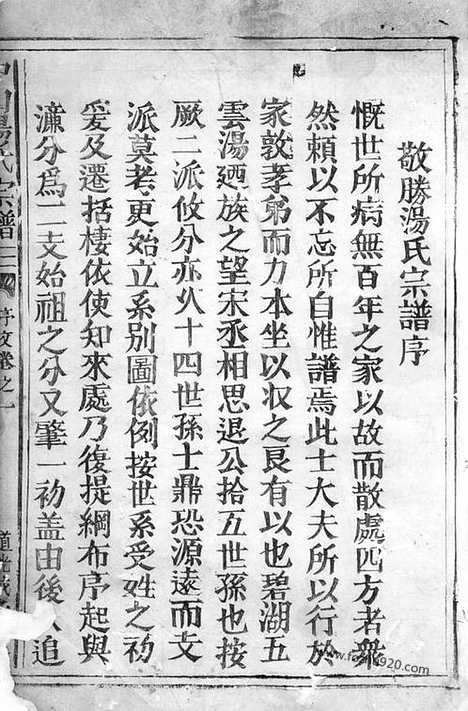 敬勝湯氏宗譜序
慨世所病無百年之家以故而散處四方者衆
然頼以不忘所自惟譜焉此士大夫所以行於
家敦孝弟而力本坐以収之良有以也碧湖五
雲湯廼族之望宋丞相思退公拾五世孫也按
厥二派攸分亦乆十四世孫士鼎恐源遠而支
派莫考更始立系別圖依例按世系受姓之初
爰及遷括棲依使知來處乃復提綱布序起與
濂分爲二支始祖之分又肇一初盖由後人追
湯氏宗譜
序文卷之一
道光
920.com